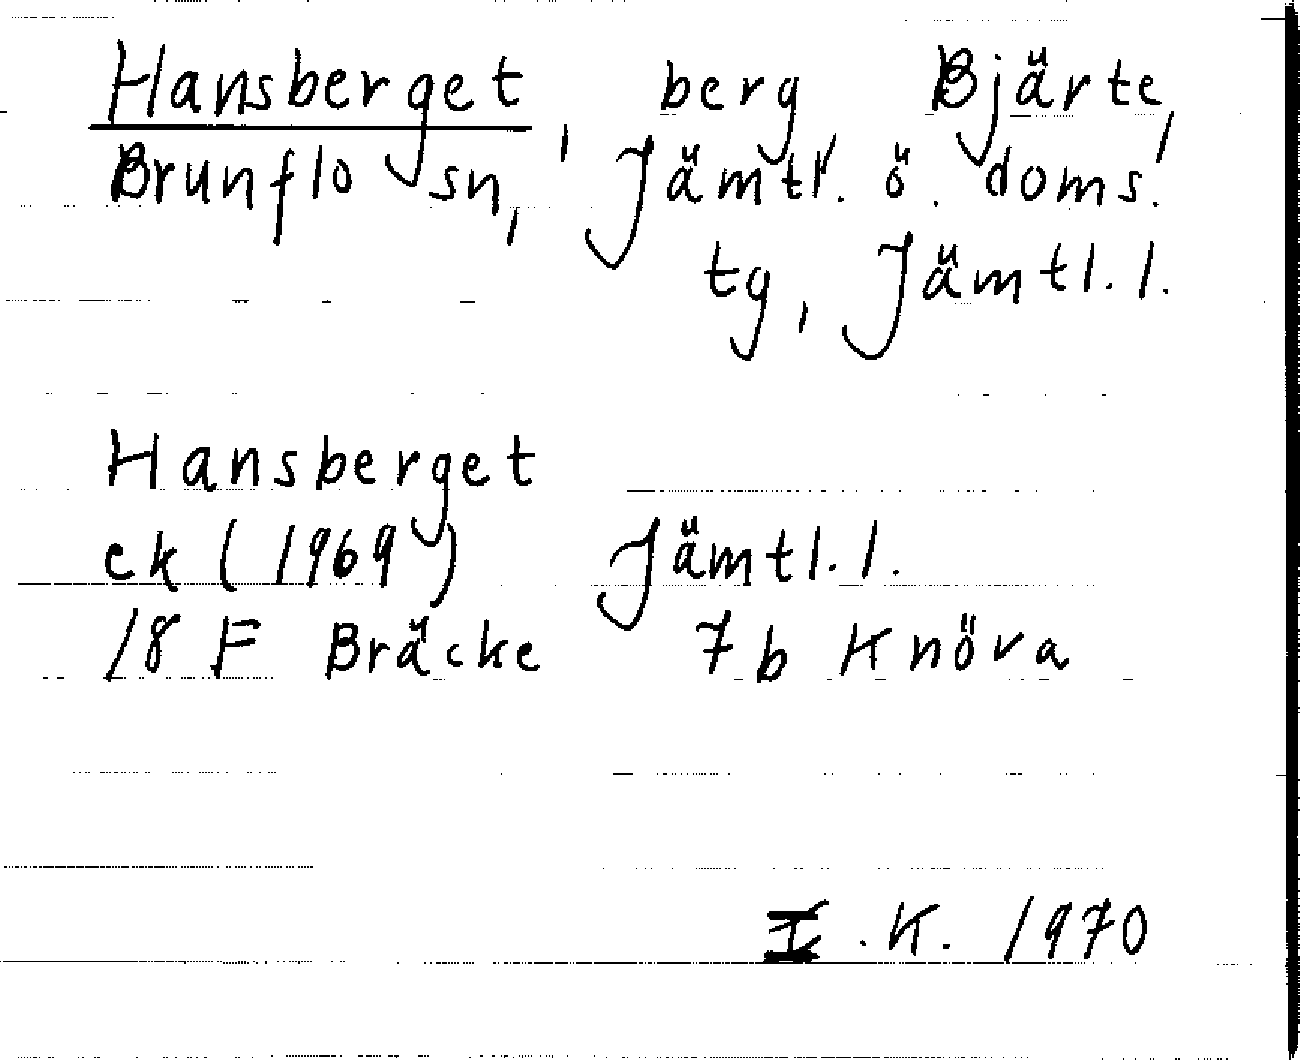 Hansberget, berg Bjärte,
Brunflo sn, Jämtl. ö. doms.
tg, Jämtl. l.
Hansberget
ek (1969) Jämtl. l.
18 F Bräcke 7b Knöva
I.K. 1970